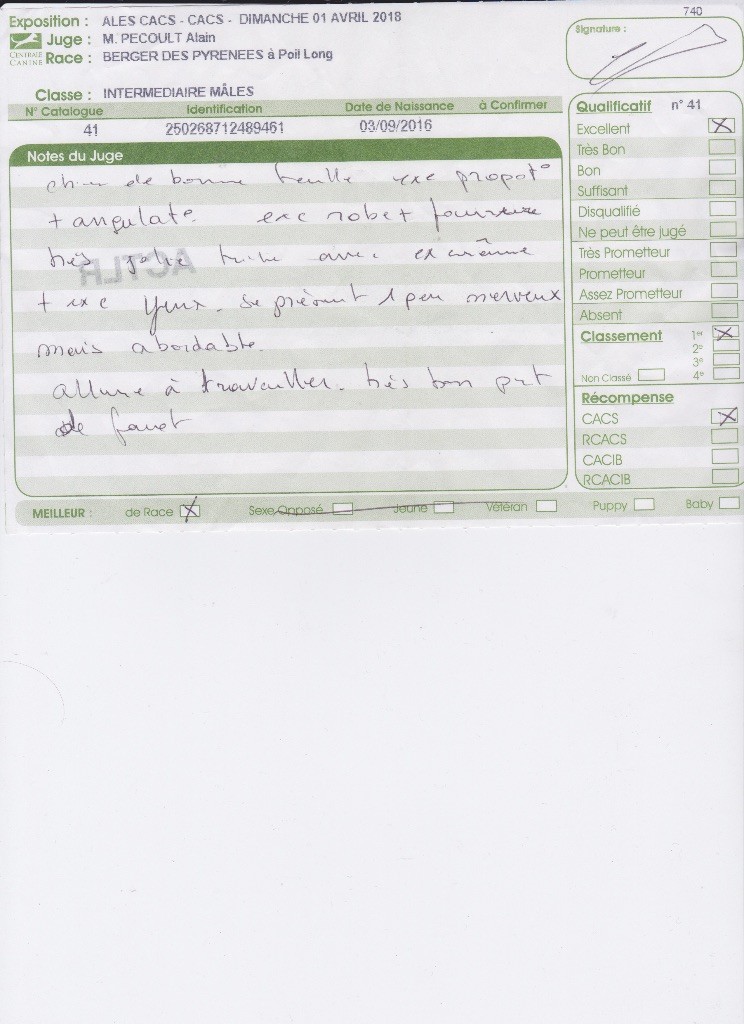 740
Exposition : ALES CACS - CACS - DIMANCHE 01 AVRIL 2018
Juge : M. PECOULT Alain
CENTRALE CANINE
Race : BERGER DES PYRENEES à Poil Long
Signature :
Classe : INTERMEDIAIRE MÂLES
N° Catalogue Identification Date de Naissance à Confirmer
41 250268712489461 03/09/2016
Notes du Juge
chien de bonne taille exc propot°
+ angulat° exc robe + fourrure
très jolie avec ex crâne
+ exc yeux. Se présent 1 peu nerveux
mais abordable.
allure à travailler. très bon
de fouet
ACTLR
Qualificatif n° 41
Excellent X
Très Bon
Bon
Suffisant
Disqualifié
Ne peut être jugé
Très Prometteur
Prometteur
Assez Prometteur
Absent
Classement 1er X
2e
3e
Non Classé 4e
Récompense
CACS X
RCACS
CACIB
RCACIB
MEILLEUR : de Race X Sexe Opposé Jeune Vétéran Puppy Baby